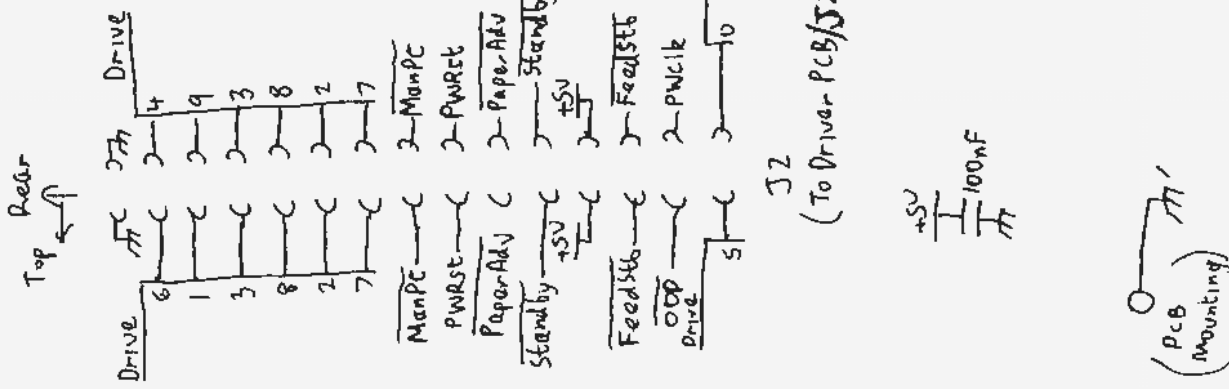 Top
Rear
Drive
6
1
3
8
2
7
ManPC
PWRst
PaperAdv
Standby
+5V
FeedStb
OOP
Drive
5
Drive
4
9
3
8
2
7
ManPC
PWRst
PaperAdv
+5V
FeedStb
PWClk
10
J2
(To Driver PCB/
+5V
100nF
(PCB
Mounting)